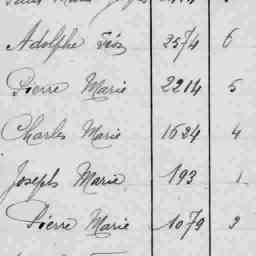 Adolphe 2574 6
Pierre Marie 2214 5
Charles Marie 1624 4
Joseph Marie 193 1
Pierre Marie 1079 3